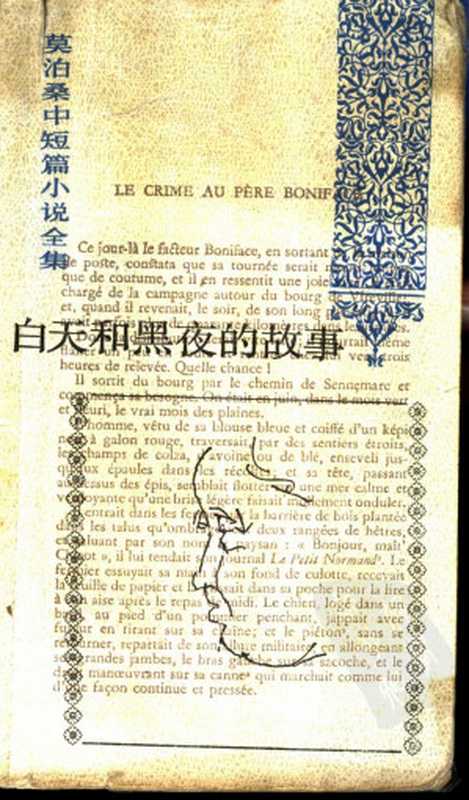 莫泊桑中短篇小说全集
LE CRIME AU PÈRE
Ce jour-là le facteur Boniface, en sortant
de poste, constata que sa tournée serait
que de coutume, et il en ressentit une joie
chargé de la campagne autour du bourg
et, quand il revenait, le soir, de son long
白天和黑夜的故事
heures de relevée. Quelle chance !
Il sortit du bourg par le chemin de Sennemare et
commença sa besogne. On était en juin, dans le mois vert
et fleuri, le vrai mois des plaines.
L'homme, vêtu de sa blouse bleue et coiffé d'un képi
à galon rouge, traversait, par des sentiers étroits,
les champs de colza, d'avoine ou de blé, enseveli jus-
qu'aux épaules dans les et sa tête, passant
au-dessus des épis, semblait flotter une mer calme et
verdoyante qu'une brise légère faisait mollement onduler.
entrait dans les la barrière de bois plantée
dans les talus deux rangées de hêtres,
et saluant par son paysan : « Bonjour, maît'
», il lui tendait journal La Petit Normand. Le
fermier essuyait sa son fond de culotte, recevait
la feuille de papier et dans sa poche pour la lire
à son aise après le repas midi. Le chien, logé dans un
au pied d'un pommier penchant, jappait avec
fureur en tirant sur sa chaîne; et le piéton, sans se
retourner, repartait de son allure militaire, en allongeant
grandes jambes, le bras sur sa sacoche, et le
manœuvrant sur sa canne qui marchait comme lui
d'une façon continue et pressée.